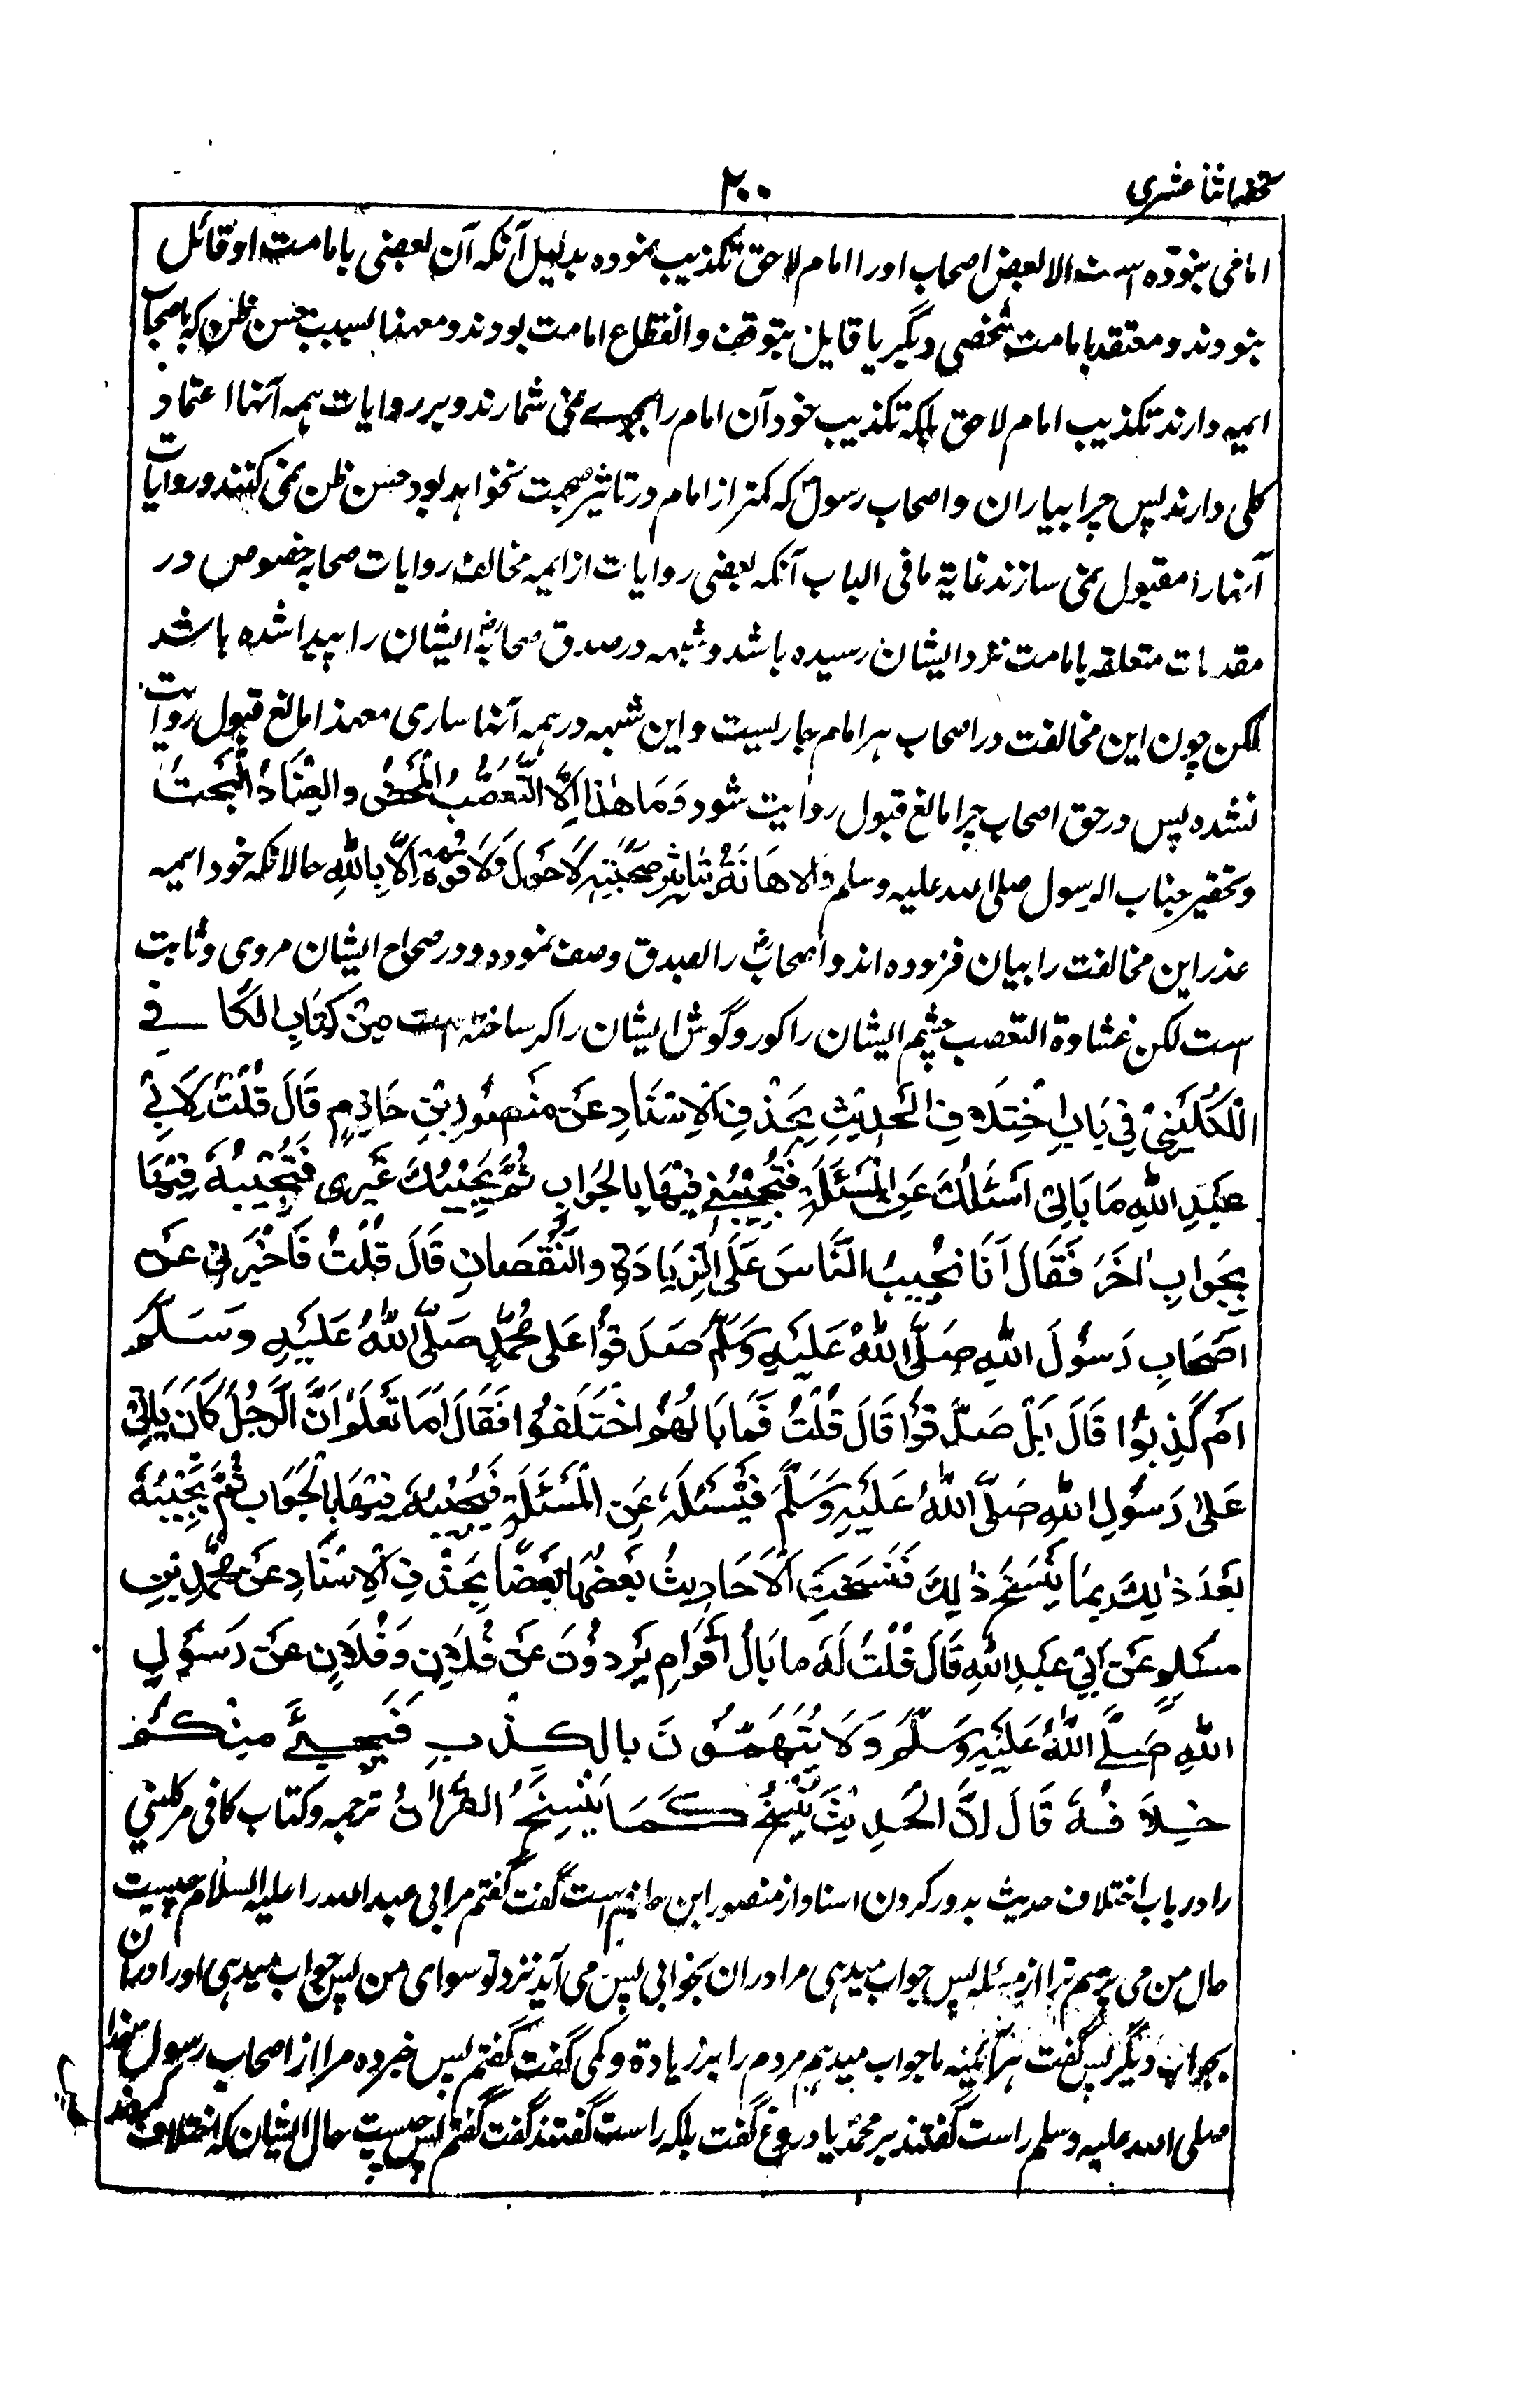 تحفه اثنا عشری
۲۰۰
امامی نبوده است الا بعض اصحاب او را امام لاحق تکذیب نموده بدلیل آنکه آن بعضی بامامت او قائل
نبودند و معتقد بامامت شخصی دیگر یا قایل بتوقف و انقطاع امامت بودند و معهذا بسبب حسن ظن که باصحاب
ایمه دارند تکذیب امام لاحق بلکه تکذیب خود آن امام را بجوے نمی شمارند و بر روایات همه آنها اعتماد
کلی دارند پس چرا بیاران و اصحاب رسول که کمتر از امام در تاثیر صحبت نخواهد بود حسن ظن نمی کنند و روایات
آنها را مقبول نمی سازند غایة ما فی الباب آنکه بعضی روایات از ایمه مخالف روایات صحابه خصوص در
مقدمات متعلقه بامامت نزد ایشان رسیده باشد و شبهه در صدق صحابهؓ ایشان را پیدا شده باشد
لکن چون این مخالفت در اصحاب هر امام جاریست و این شبهه در همه آنها ساری معهذا مانع قبول روایت
نشده پس در حق اصحاب چرا مانع قبول روایت شود وَمَا هٰذَا اِلَّا التَّعَصُّبُ الْمَحْضُ والعِنَادُ الْبَحْتُ
و تحقیر جناب الرسول صلی الله علیه وسلم وَالاهَانَةُ بِتَاثِيْرِ صُحْبَتِهٖ لَا حَوْلَ وَلَا قُوَّةَ اِلَّا بِاللهِ حالانکه خود ایمه
عذر این مخالفت را بیان فرموده اند و اصحابؓ را بصدق وصف نموده و در صحاح ایشان مروی و ثابت
است لکن غشاوة التعصب چشم ایشان را کور و گوش ایشان را کر ساخته است مِنْ كِتَابِ الْكَافِے
الْلكُلَيْنِىْ فِي بَابِ اِخْتِلَافِ الْحَدِيْثِ بِحَذْفِ الْاِسْنَادِ عَنْ مَنْصُوْرِ بْنِ حَازِمٍ قَالَ قُلْتُ لِاَبِىْ
عَبْدِ اللهِ مَا بَالِىْ اَسْئَلُكَ عَنِ الْمَسْئَلَةِ فَتُجِيْبُنِىْ فِيْهَا بِالْجَوَابِ ثُمَّ يَجِيْئُكَ غَيْرِى فَتُجِيْبُهٗ فِيْهَا
بِجَوَابٍ اٰخَرَ فَقَالَ اَنَا نُجِيْبُ النَّاسَ عَلَى الزِّيَادَةِ وَالنُّقْصَانِ قَالَ قُلْتُ فَاَخْبِرْنِىْ عَنْ
اَصْحَابِ رَسُوْلِ اللهِ صَلَّى اللهُ عَلَيْهِ وَسَلَّمَ صَدَقُوْا عَلٰى مُحَمَّدٍ صَلَّى اللهُ عَلَيْهِ وَسَلَّمَ
اَمْ كَذِبُوْا قَالَ بَلْ صَدَقُوْا قَالَ قُلْتُ فَمَا بَالُهُمْ اخْتَلَفُوْا فَقَالَ اَمَا تَعْلَمْ اَنَّ الرَّجُلَ كَانَ يَاتِىْ
عَلٰى رَسُوْلِ اللهِ صَلَّى اللهُ عَلَيْهِ وَسَلَّمَ فَيَسْئَلُهٗ عَنِ الْمَسْئَلَةِ فَيُجِيْبُهٗ فِيْهَا بِالْجَوَابِ ثُمَّ يُجِيْبُهٗ
بَعْدَ ذٰلِكَ بِمَا يَنْسَخُ ذٰلِكَ فَنَسَخَتِ الْاَحَادِيْثُ بَعْضُهَا بَعْضًا بِحَذْفِ الْاِسْنَادِ عَنْ مُحَمَّدِ بْنِ
مُسْلِمٍ عَنْ اَبِىْ عَبْدِ اللهِ قَالَ قُلْتُ لَهٗ مَا بَالُ اَقْوَامٍ يَرْوُوْنَ عَنْ فُلَانٍ وَفُلَانٍ عَنْ رَسُوْلِ
اللهِ صَلَّى اللهُ عَلَيْهِ وَسَلَّمَ وَلَا يُتَّهَمُوْنَ بِالْكِذْبِ فَيَجِيْئُ مِنْكُمْ
خِلَافُهٗ قَالَ اِنَّ الْحَدِيْثَ يُنْسَخُ كَمَا يُنْسَخُ الْقُرْاٰنُ ترجمه و کتاب کافی مر کلینی
را در باب اختلاف حدیث بدور کردن اسناد از منصور ابن حازم است گفت گفتم مر ابی عبد الله را علیه السلام چیست
حال من می پرسم ترا از مسئله پس جواب میدهی مرا در ان بجوابی پس می آید نزد تو سوای من پس جواب میدهی او را در ان
بجواب دیگر پس گفت هر آئینه ما جواب میدهم مردم را بر زیادة و کمی گفت گفتم پس خبر ده مرا از اصحاب رسول خدا
صلی الله علیه وسلم راست گفتند بر محمد یا دروغ گفت بلکه راست گفتند گفت گفتم پس چیست حال ایشان که اختلاف کردند